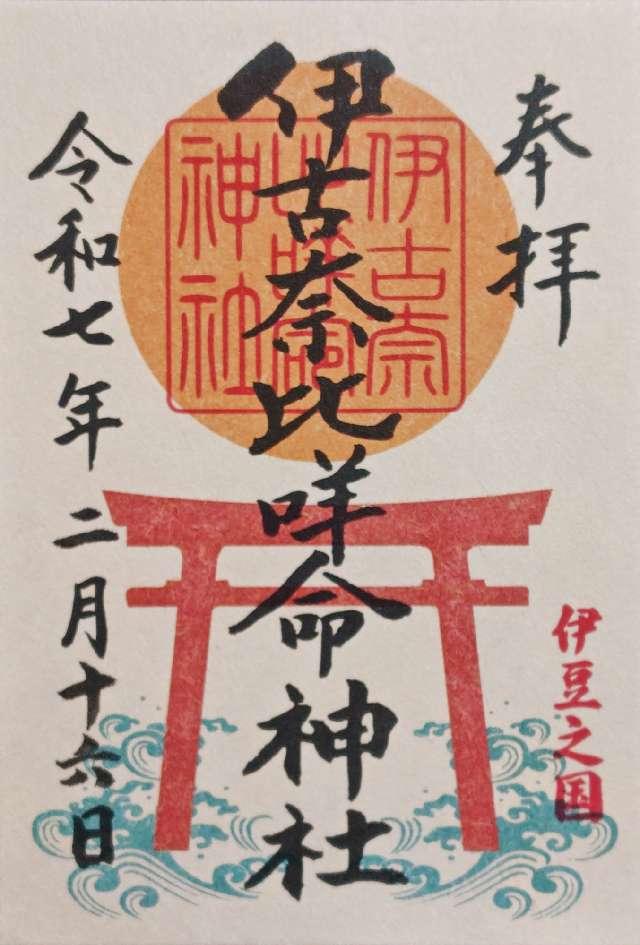 奉拝
伊豆之国
伊古奈比咩命神社
伊古奈
比咩命
神社
令和七年二月十六日